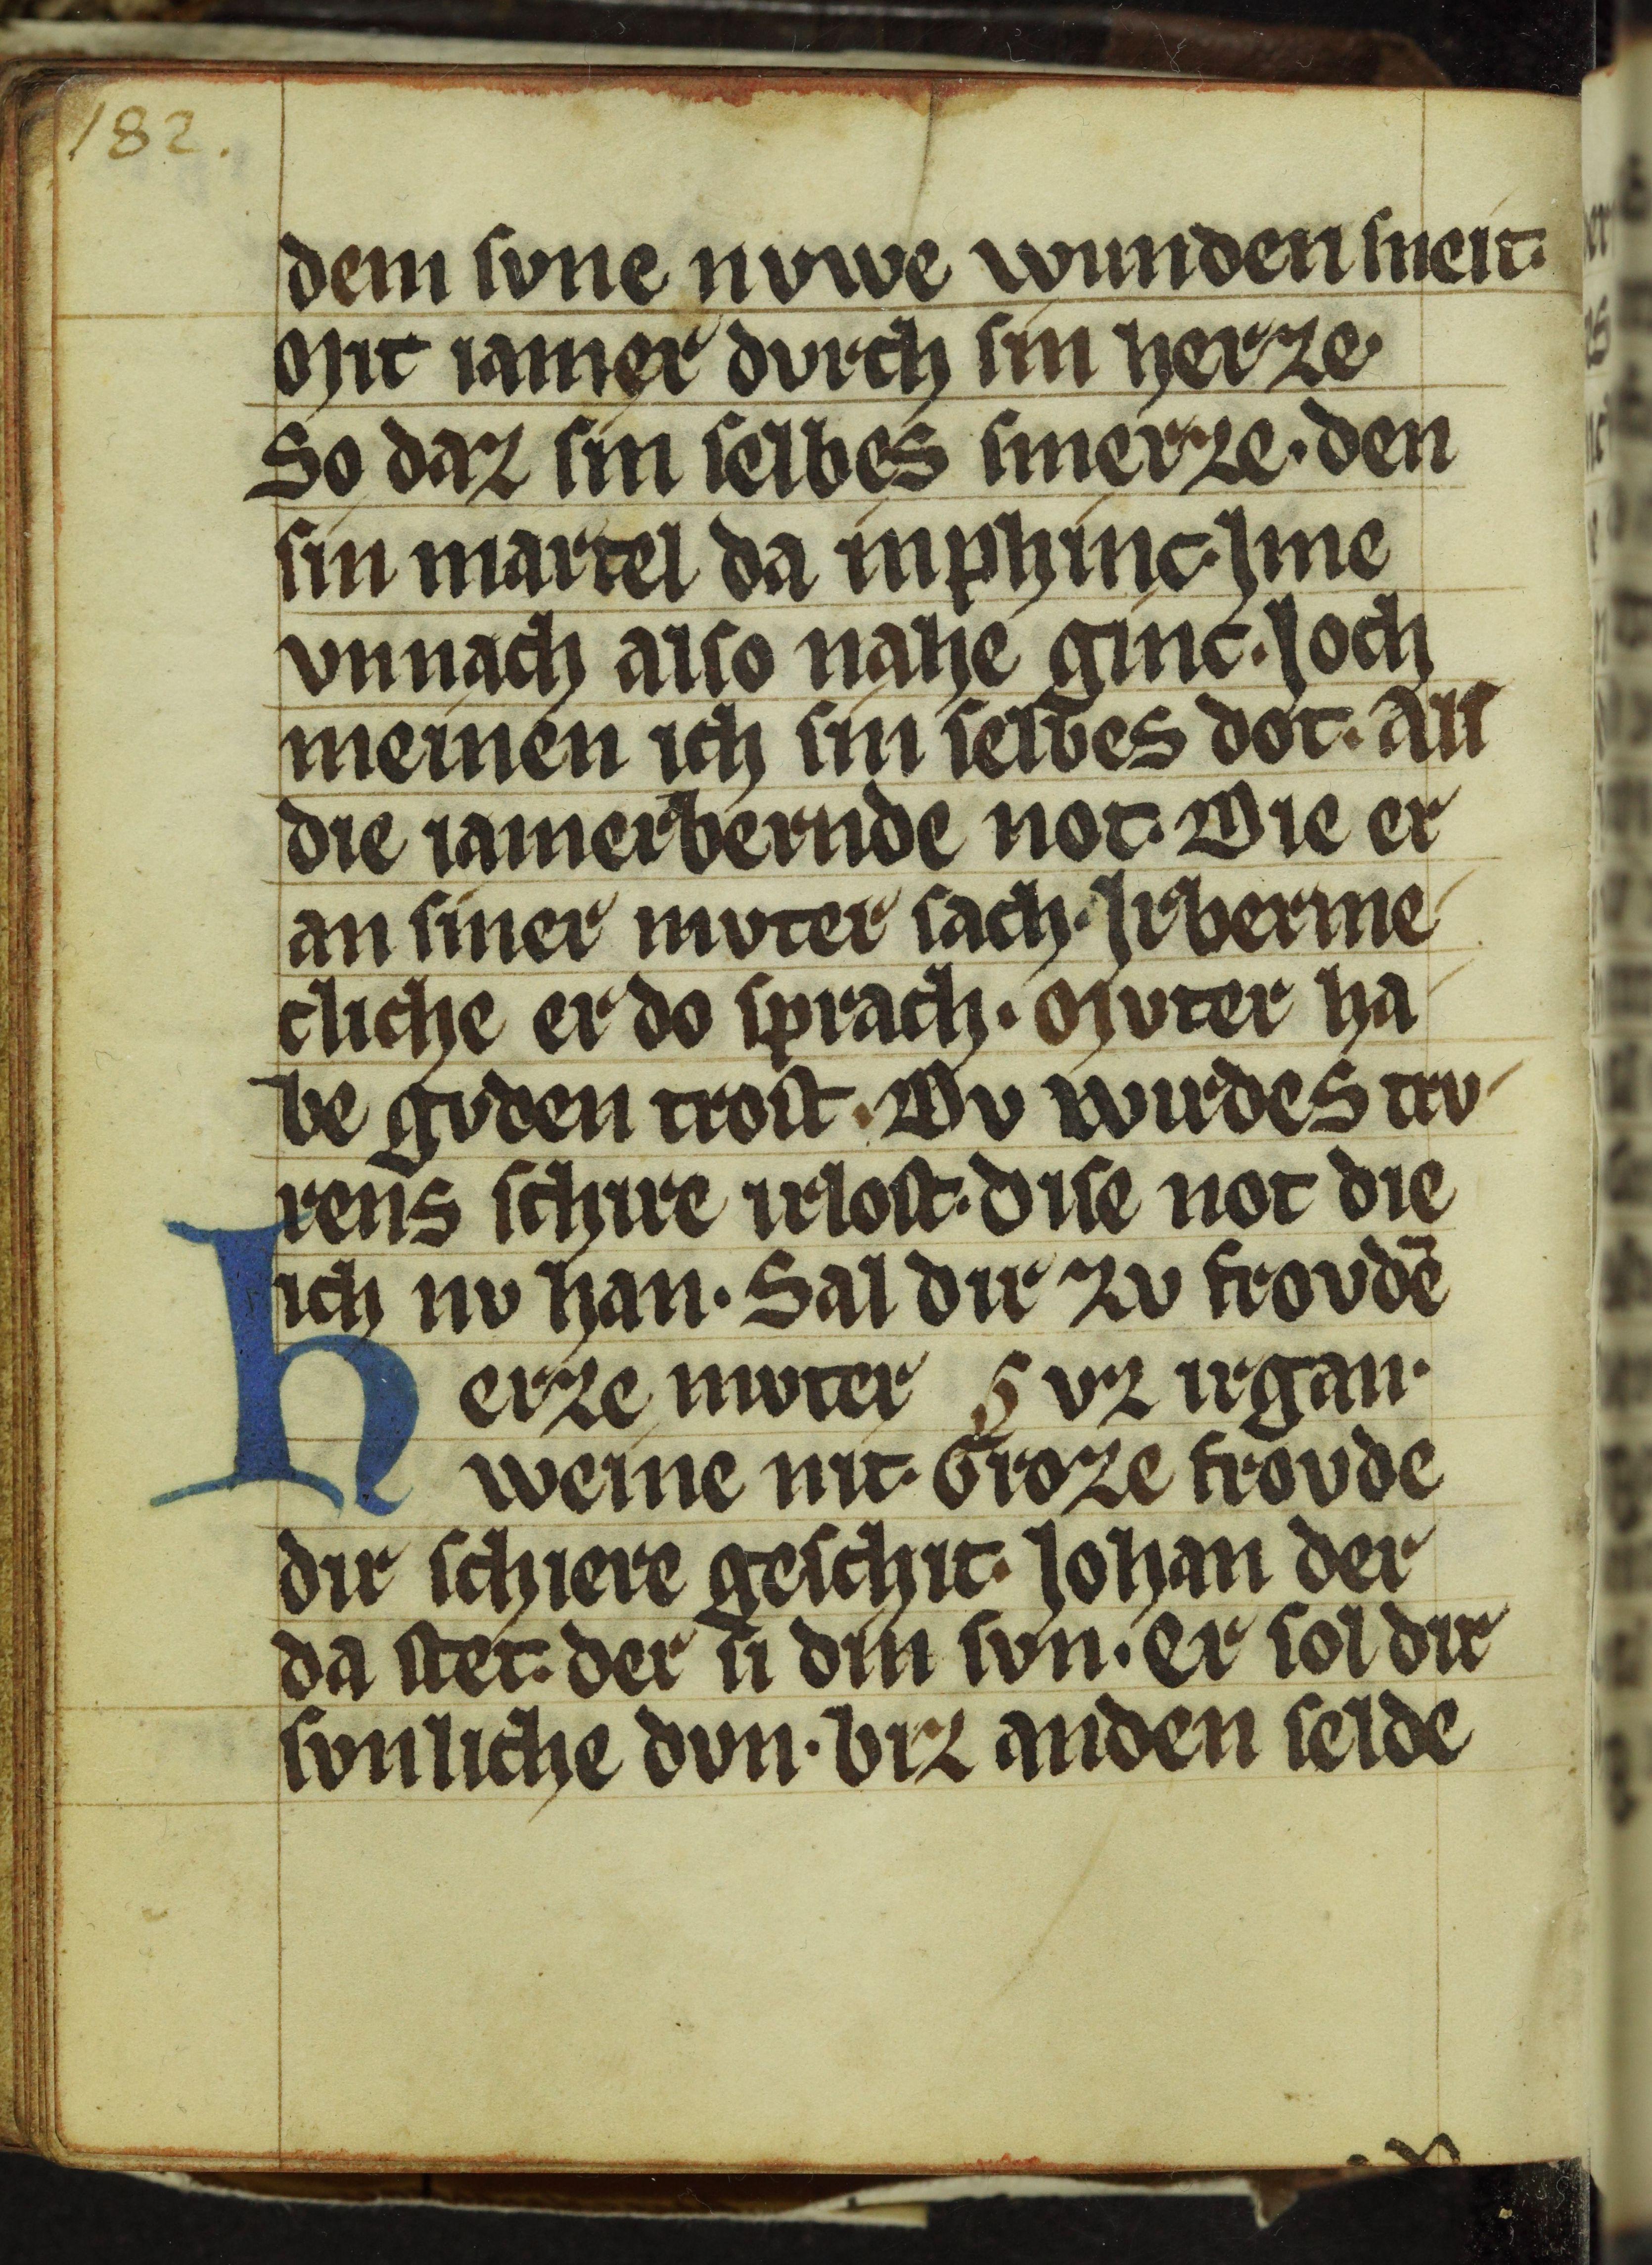 182.
dem svne nvwe wunden sneit.
Mit iamer dvrch sin herze.
So daz sin selbes smerze. den
sin martel da inphinc. Ime
vnnach also nahe ginc. Joch
meinen ich sin selbes dot. All
die iamerbernde not. Die er
an siner mvter sach. Irberme
cliche er do sprach. Mvter ha
be gvden trost. Dv wirdes trv
rens schire irlost. Dise not die
ich nv han. Sal dir zv frovdē
Herze mvter vz irgan.
weine nit. Groze frovde
dir schiere geschit. Johan der
da stet. der si din svn. Er sol dir
svnliche dvn. biz anden selde